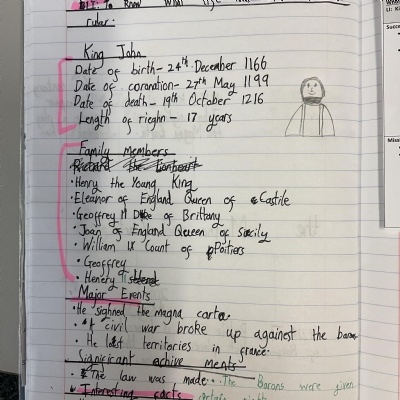 To know what life was
ruler.
King John
Date of birth - 24th December 1166
Date of coronation - 27th May 1199
Date of death - 19th October 1216
Length of rieghn - 17 years
Family members
Richard the lionheart
• Henry the Young King
• Eleanor of England Queen of Castile
• Geoffrey II Duke of Brittany
• Joan of England Queen of Sicily
• William IX Count of Poitiers
• Geoffrey
• Henery II
Major Events
• He sighned the magna carta.
• A civil war broke up against the baron
• He lost territories in france.
Significant achive ments
• The law was made. The Barons were given
• Interesting facts certain rights